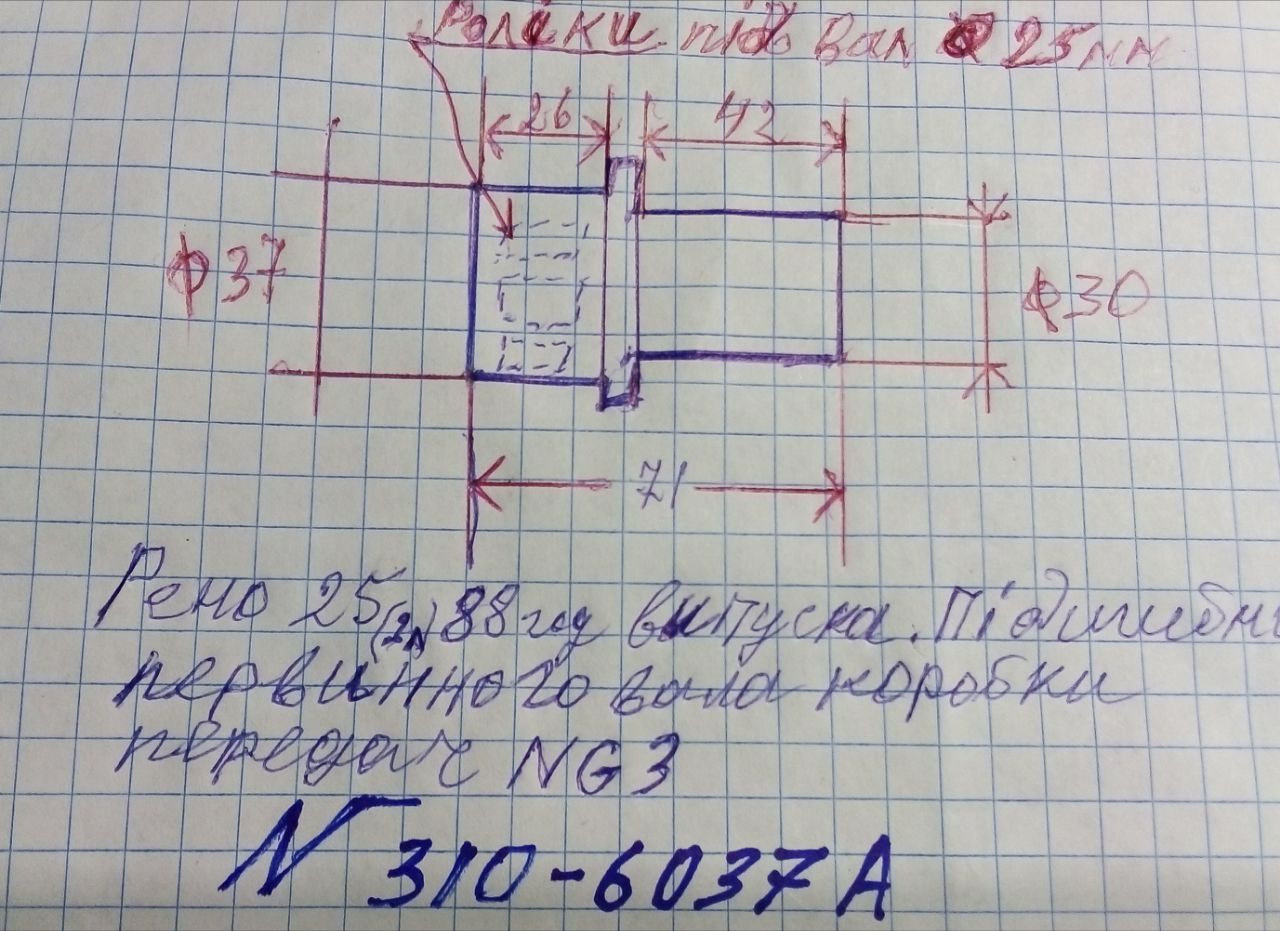 Ролики під вал Ø 25мм
26
42
ф37
ф30
71
Рено 25(2л) 88 год випуска. Підшибн
первинного вала коробки
передач NG3
N 310-6037A